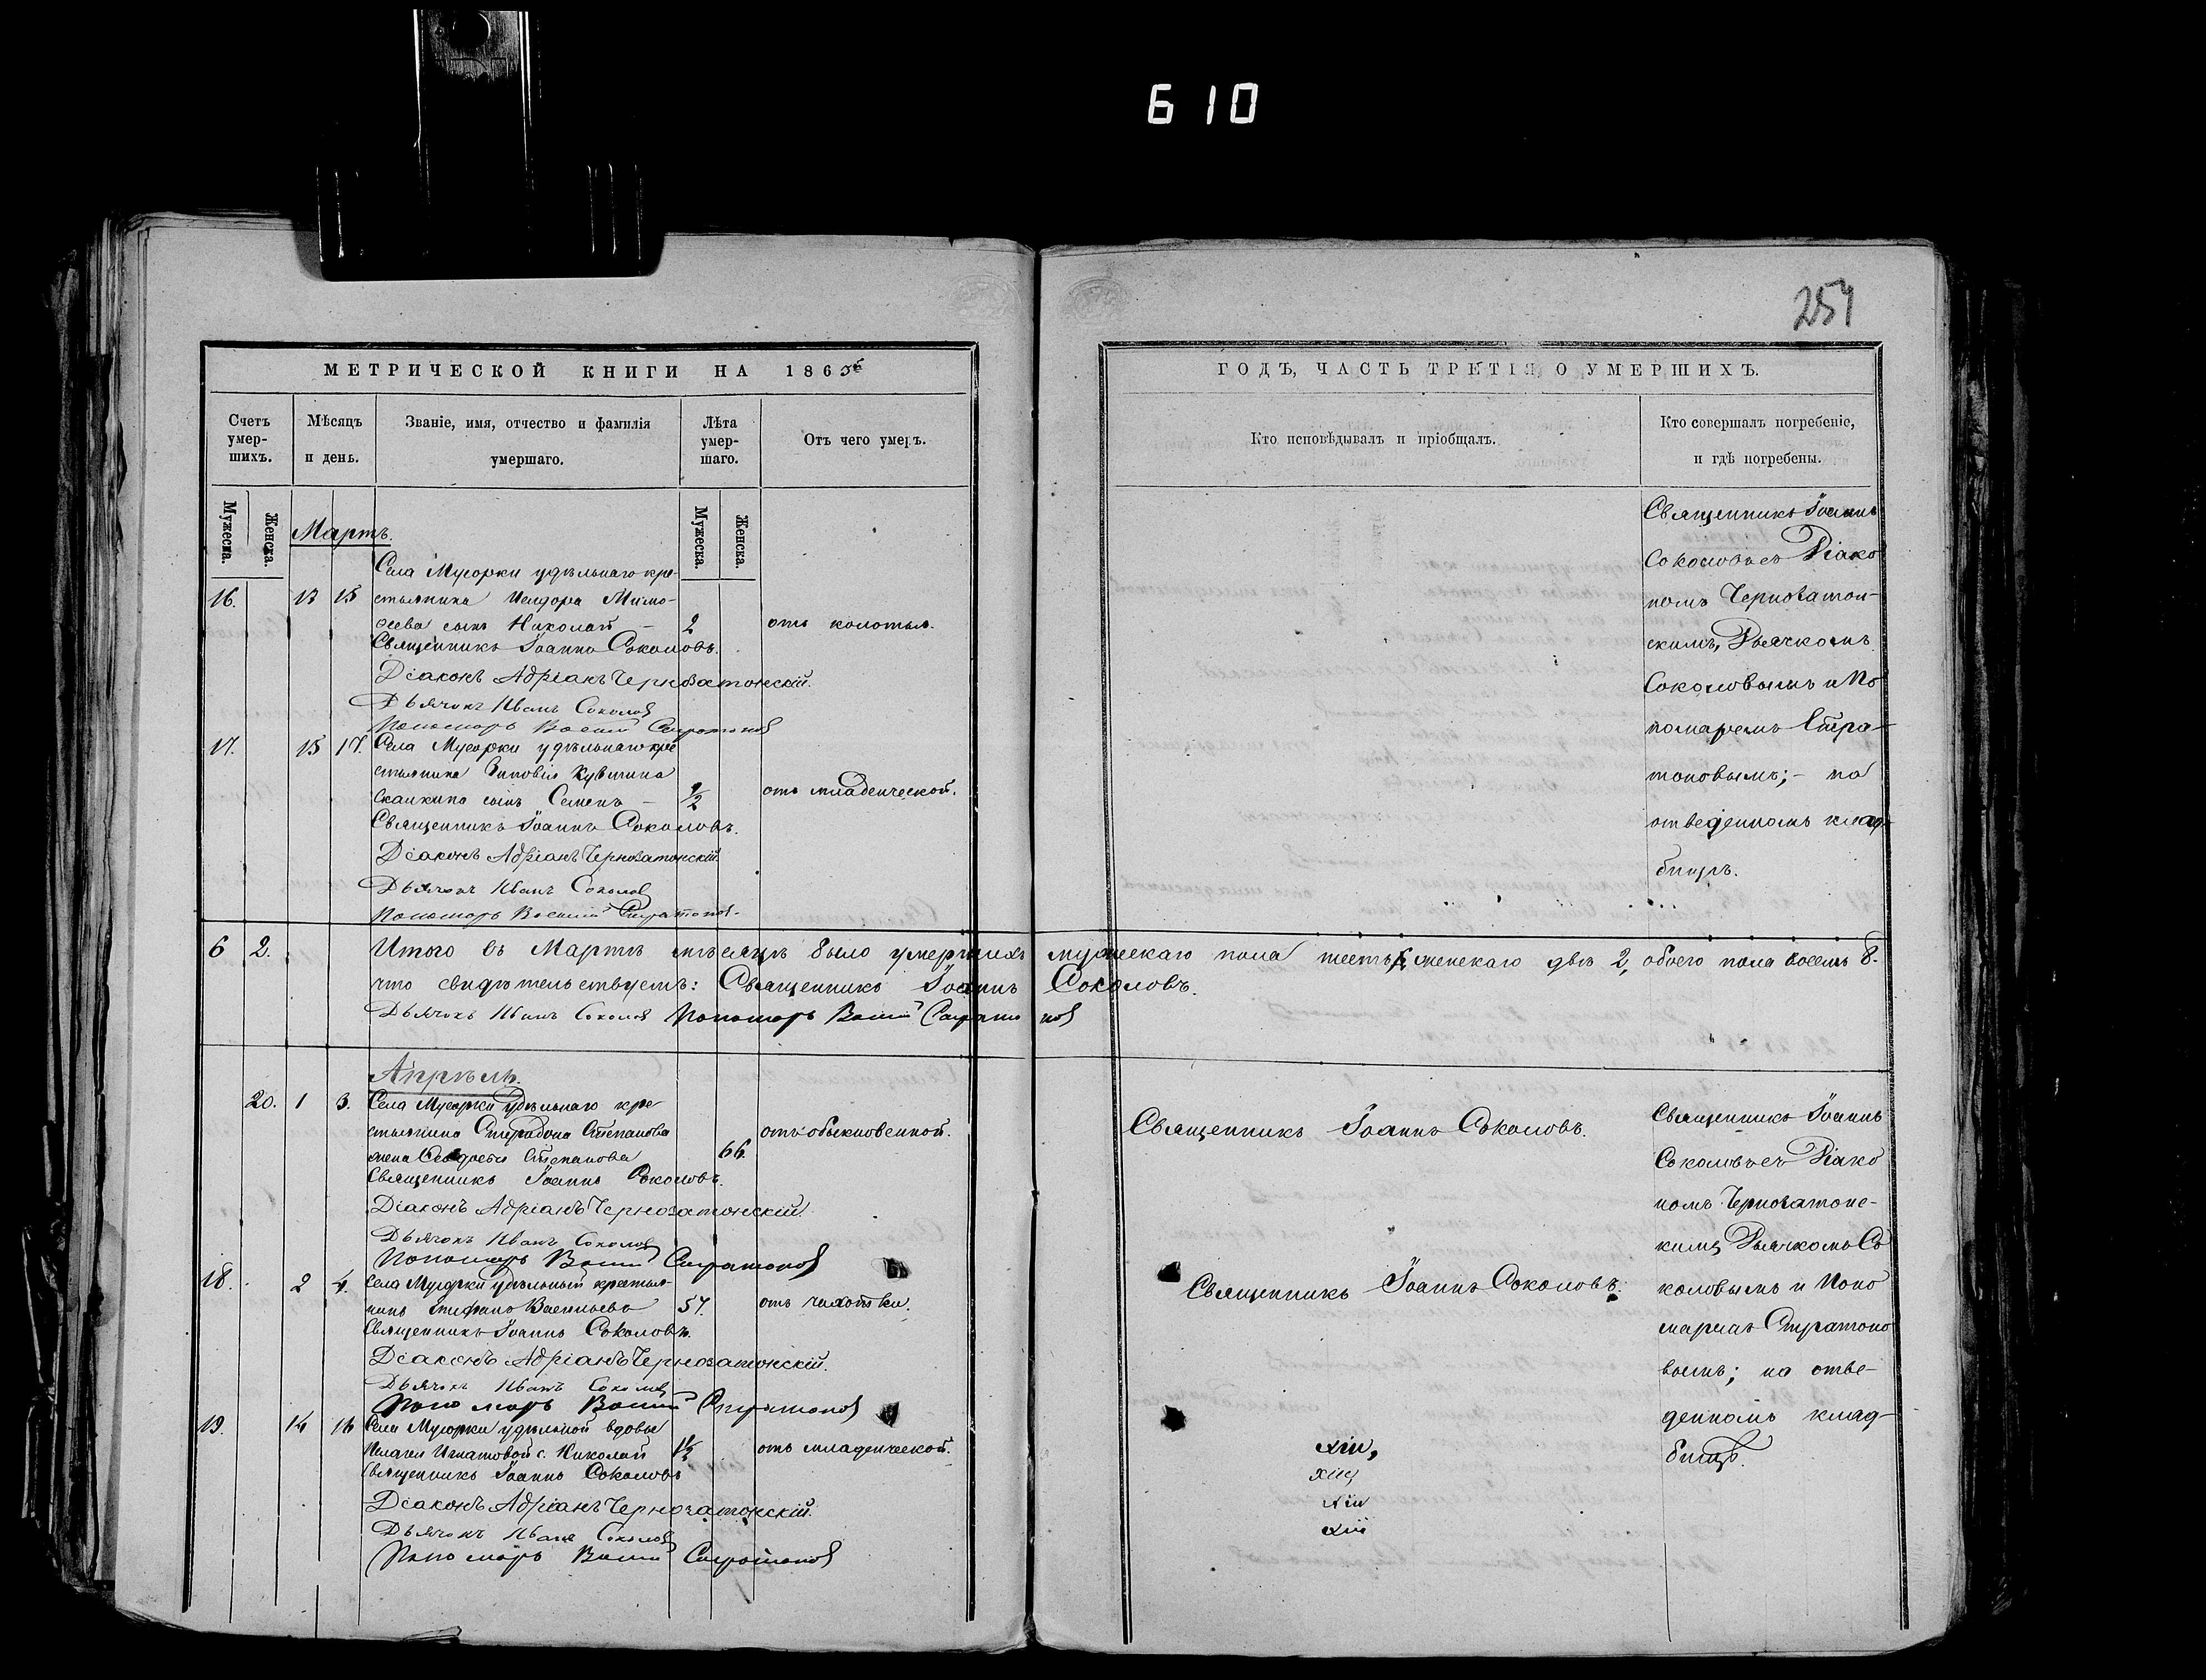 610
251
МЕТРИЧЕСКОЙ КНИГИ НА 1865й
Счетъ умер-шихъ.
Мѣсяцъ и день.
Званіе, имя, отчество и фамилія умершаго.
Лѣта умер-шаго.
Отъ чего умеръ.
Мужеска.
Женска.
Мужеска.
Женска.
Мартъ.
Села Мусорки удѣльнаго кре-
16. 13 15 стьянина Исидора Тимо-
ѳеева сынъ Николай – 2 отъ колотья.
Священникъ Іоаннъ Соколовъ.
Діаконъ Адріанъ Чернозатонскій.
Дьячокъ Иванъ Соколов
Пономарь Василий Стратонов
17. 15 17. Села Мусорки удѣльнаго кре
стьянина Зиновія
сынъ Семенъ – 1/2 отъ младенческой.
Священникъ Іоаннъ Соколовъ.
Діаконъ Адріанъ Чернозатонскій.
Дьячокъ Иванъ Соколов
Пономарь Василий Стратонов.
6 2. Итого въ Мартѣ мѣсяцѣ было умершихъ мужескаго пола шесть 6, женскаго двѣ 2, обоего пола восемь 8.
что свидѣтельствуетъ: Священникъ Іоаннъ Соколовъ.
Дьячокъ Иванъ Соколов Пономарь Василий Стратонов
Апрѣль.
20. 1 3. Села Мусорки удѣльнаго кре
стьянина Степанова
жена Степанова 66. отъ обыкновенной.
Священникъ Іоаннъ Соколовъ.
Діаконъ Адріанъ Чернозатонскій.
Дьячокъ Иванъ Соколов
Пономарь Василий Стратонов
18. 2 4. Села Мусорки удѣльный крестья-
нинъ Васильевъ 57. отъ чахотки.
Священникъ Іоаннъ Соколовъ.
Діаконъ Адріанъ Чернозатонскій.
Дьячокъ Иванъ Соколов
Пономарь Василий Стратонов
19. 14 16 Села Мусорки удѣльной вдовы
Игнатовой с. Николай 1 1/2 отъ младенческой.
Священникъ Іоаннъ Соколовъ
Діаконъ Адріанъ Чернозатонскій.
Дьячокъ Иванъ Соколов
Пономарь Василий Стратонов
ГОДЪ, ЧАСТЬ ТРЕТІЯ, О УМЕРШИХЪ.
Кто исповѣдывалъ и пріобщалъ.
Кто совершалъ погребеніе,
и гдѣ погребены.
Священникъ Іоаннъ
Соколовъ съ Діако
номъ Чернозатон-
скимъ, Дьячкомъ
Соколовымъ и По
номаремъ Стра-
тоновымъ; – на
отведенномъ клад
бищѣ.
Священникъ Іоаннъ Соколовъ.
Священникъ Іоаннъ Соколовъ.
Священникъ Іоаннъ
Соколовъ съ Діако
номъ Чернозатонс-
кимъ, Дьячкомъ Со
коловымъ и Поно
маремъ Стратоно
вымъ; на отве-
денномъ клад-
бищѣ.